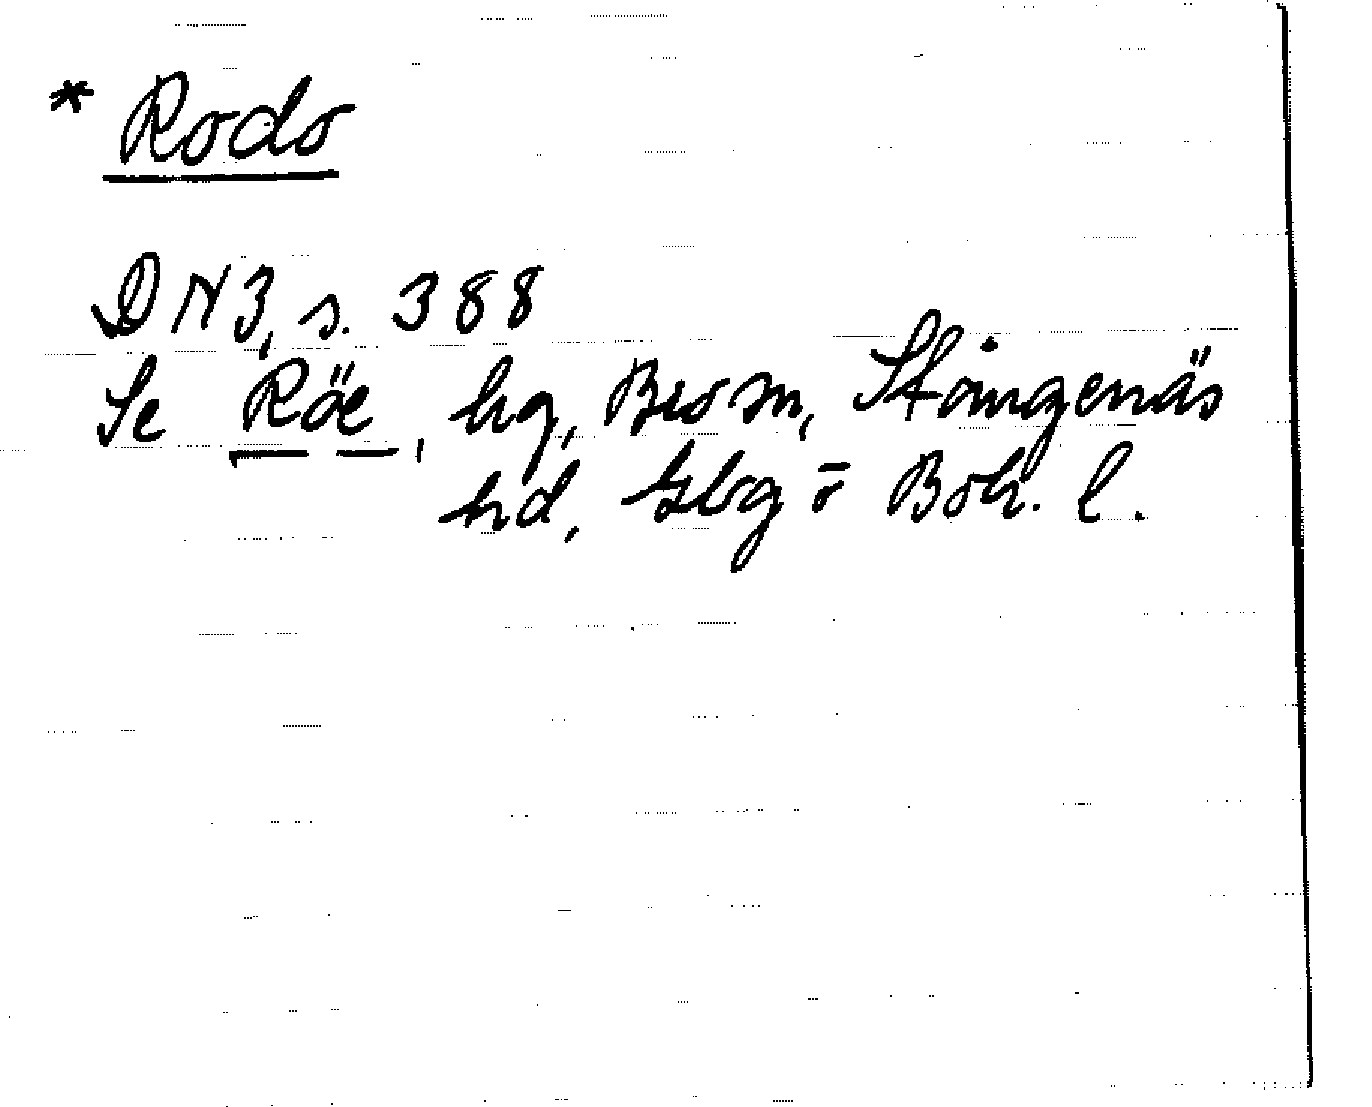 * Rodo
DN 3, s. 388
Se Röe, hg, Bro sn, Stångenäs
hd, Gbg o Boh. l.